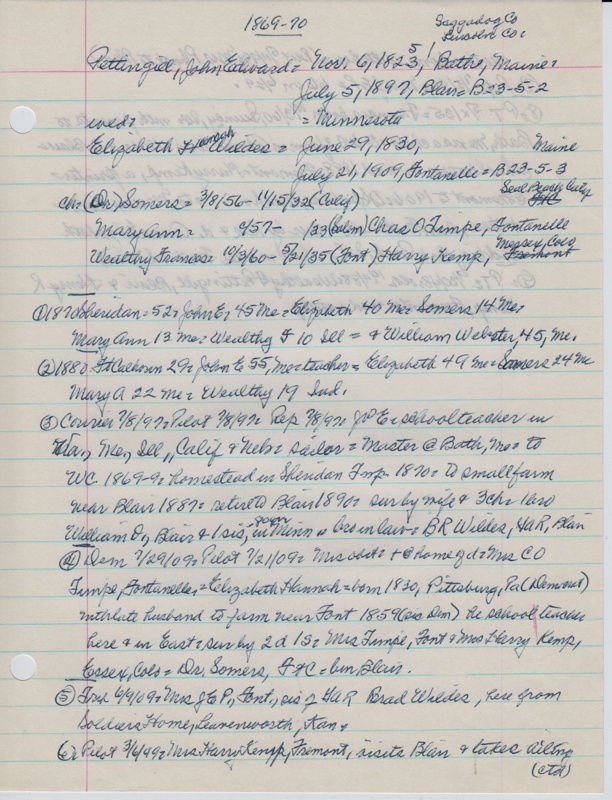 1869-70
Saggadog Co
Lincoln Co:
Pettingil, John Edward = Nov, 6, 1823,5 / Bathe, Maine:
July 5, 1897, Blair = B23-5-2
wed: = Minnesota
Elizabeth Hannah Wildes = June 29, 1830, Maine
July 21, 1909, Fontanelle = B23-5-3
Seal Beach, Calif
ch: (Dr) Somers = 3/8/56 - 11/15/32 (Calif)
Mary Ann = 9/57- /33 (Salem) Chas O Timpe, Fontanelle
Wealthy Frances = 10/3/60 - 5/21/35 (Font) Harry Kemp, Fremont
① 1870 Sheridan = 52 = John E, 45 Me = Elizabeth 40 Me = Somers 14 Me =
Mary Ann 13 Me = Wealthy F 10 Ill = & William Webster, 45, Me.
② 1880 Ft Calhoun 29 = John E 55, Me = teacher = Elizabeth 49 Me = Somers 24 Me
Mary A 22 Me = Wealthy 19 Ind.
③ Courier 7/8/97 = Pilot 7/8/97 = Rep 7/8/97 = Jno E = school teacher in
Me, Ill, Calif & Nebr = sailor = Master @ Bath, Me = to
WC 1869-9 = homestead in Sheridan Tmp. 1870 = to small farm
near Blair 1887 = retire to Blair 1890 = sur by wife & 3 ch = 1 bro
William D, Blair & 1 sis, in Minn = bro in law = BR Wildes, H&R, Blair
④ Dem 7/29/09 = Pilot 7/21/09 = Mrs obit = + @ home of d = Mrs CO
Timpe, Fontanelle, = Elizabeth Hannah = born 1830, Pittsburg, Pa (Dem out)
late husband to farm near Font 1859 (sic Dem) he school teacher
here & in East = sur by 2d 1s = Mrs Timpe, Font = Mrs Harry Kemp,
Essex, Colo = Dr. Somers, Ft C = bur Blair.
⑤ Trib 6/4/09 = Mrs J E P, Font, sis of H&R Brad Wildes, here from
Soldiers Home, Leavenworth, Kan.
6 = Pilot 3/6/99 = Mrs Harry Kemp, Fremont, visits Blair & takes ailing
(ctd)